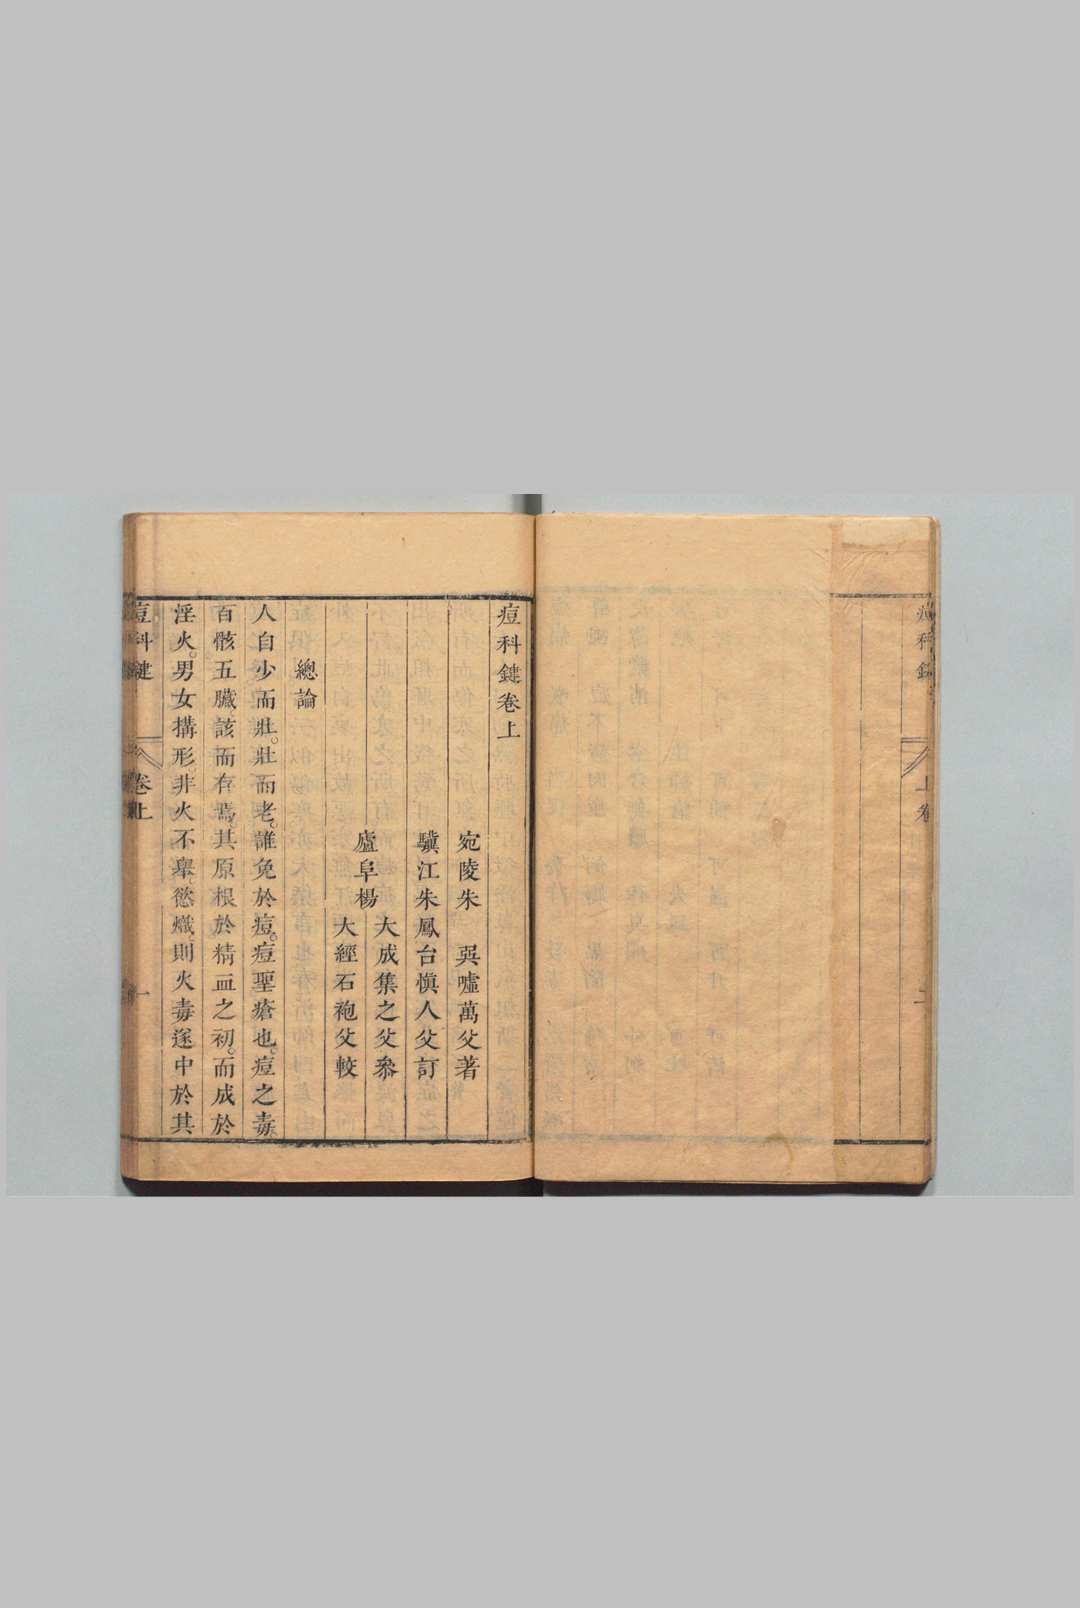 痘科鍵
上卷
二
痘科鍵卷上
宛陵朱　巽噓萬父著
驥江朱鳳台愼人父訂
廬阜楊
大成集之父叅
大經石袍父較
總論
人自少而壯。壯而老。誰免於痘。痘聖瘡也。痘之毒
百骸五臟該而存焉。其原根於精血之初。而成於
淫火。男女搆形。非火不舉。慾熾則火毒遂中於其
痘科鍵
卷上
一